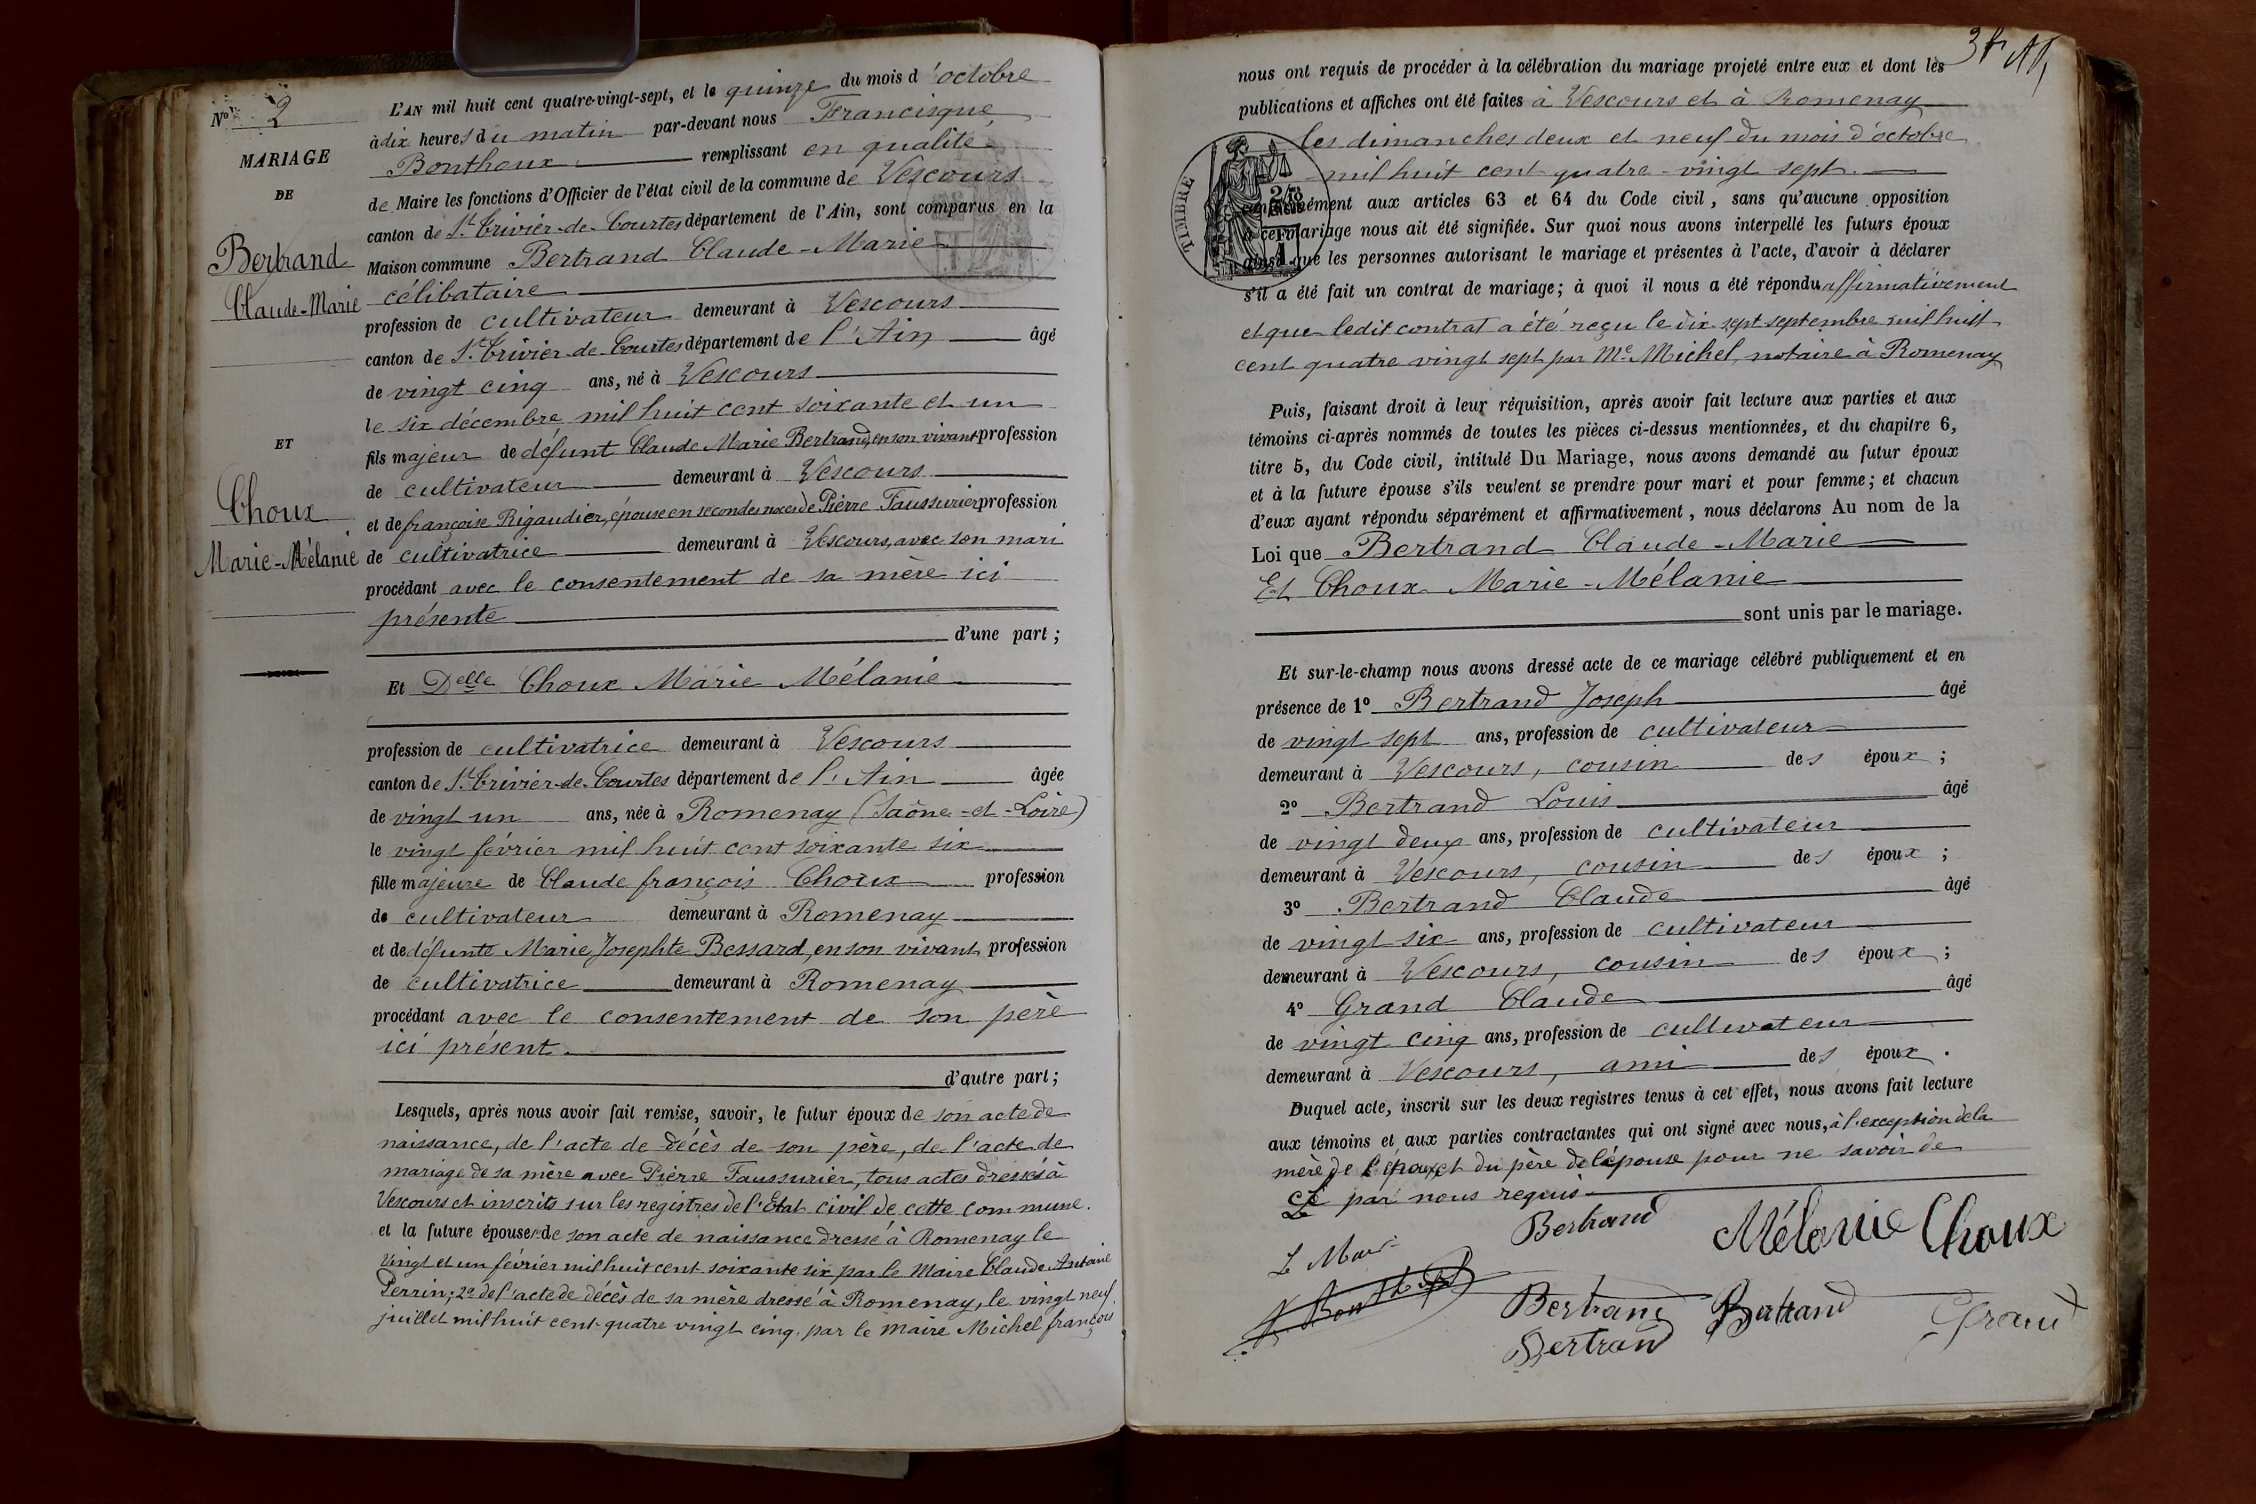 N° 2
MARIAGE
DE
Bertrand
Claude-Marie
ET
Choux
Marie-Mélanie
L'AN mil huit cent quatre-vingt-sept, et le quinze du mois d'octobre
à dix heures du matin par-devant nous Francisque
Bonthoux remplissant en qualité
de Maire les fonctions d'Officier de l'état civil de la commune de Vescours
canton de St Trivier-de-Courtes département de l'Ain, sont comparus en la
Maison commune Bertrand Claude-Marie
célibataire
profession de cultivateur demeurant à Vescours
canton de St Trivier-de-Courtes département de l'Ain âgé
de vingt cinq ans, né à Vescours
le six décembre mil huit cent soixante et un
fils majeur de défunt Claude Marie Bertrand, en son vivant profession
de cultivateur demeurant à Vescours
et de françoise Rigaudier, épouse en secondes noces de Pierre Faussurier profession
de cultivatrice demeurant à Vescours, avec son mari
procédant avec le consentement de sa mère ici
présente
d'une part ;
Et Delle Choux Marie Mélanie
profession de cultivatrice demeurant à Vescours
canton de St Trivier-de-Courtes département de l'Ain âgée
de vingt un ans, née à Romenay (Saône-et-Loire)
le vingt février mil huit cent soixante six
fille majeure de Claude françois Choux profession
de cultivateur demeurant à Romenay
et de défunte Marie Josephte Bessard, en son vivant profession
de cultivatrice demeurant à Romenay
procédant avec le consentement de son père
ici présent.
d'autre part ;
Lesquels, après nous avoir fait remise, savoir, le futur époux de son acte de
naissance, de l'acte de décès de son père, de l'acte de
mariage de sa mère avec Pierre Faussurier, tous actes dressés à
Vescours et inscrits sur les registres de l'Etat civil de cette commune.
et la future épouse de son acte de naissance dressé à Romenay le
vingt et un février mil huit cent soixante six par le Maire Claude Antoine
Perrin; 2° de l'acte de décès de sa mère dressé à Romenay, le vingt neuf
juillet mil huit cent quatre vingt cinq par le maire Michel françois
nous ont requis de procéder à la célébration du mariage projeté entre eux et dont les
publications et affiches ont été faites à Vescours et à Romenay
les dimanches deux et neuf du mois d'octobre
mil huit cent quatre-vingt sept.
TIMBRE
conformément aux articles 63 et 64 du Code civil, sans qu'aucune opposition
à ce mariage nous ait été signifiée. Sur quoi nous avons interpellé les futurs époux
ainsi que les personnes autorisant le mariage et présentes à l'acte, d'avoir à déclarer
s'il a été fait un contrat de mariage; à quoi il nous a été répondu affirmativement
et que ledit contrat a été reçu le dix sept septembre mil huit
cent quatre vingt sept par Me Michel, notaire à Romenay
Puis, faisant droit à leur réquisition, après avoir fait lecture aux parties et aux
témoins ci-après nommés de toutes les pièces ci-dessus mentionnées, et du chapitre 6,
titre 5, du Code civil, intitulé Du Mariage, nous avons demandé au futur époux
et à la future épouse s'ils veulent se prendre pour mari et pour femme; et chacun
d'eux ayant répondu séparément et affirmativement, nous déclarons Au nom de la
Loi que Bertrand Claude-Marie
Et Choux Marie-Mélanie
sont unis par le mariage.
Et sur-le-champ nous avons dressé acte de ce mariage célébré publiquement et en
présence de 1° Bertrand Joseph âgé
de vingt sept ans, profession de cultivateur
demeurant à Vescours, cousin des époux ;
2° Bertrand Louis âgé
de vingt deux ans, profession de cultivateur
demeurant à Vescours, cousin des époux ;
3° Bertrand Claude âgé
de vingt six ans, profession de cultivateur
demeurant à Vescours, cousin des époux ;
4° Grand Claude âgé
de vingt cinq ans, profession de cultivateur
demeurant à Vescours, ami des époux.
Duquel acte, inscrit sur les deux registres tenus à cet effet, nous avons fait lecture
aux témoins et aux parties contractantes qui ont signé avec nous, à l'exception de la
mère de l'époux et du père de l'épouse pour ne savoir de
ce par nous requis
Bertrand Mélanie Choux
Bertrand Bertrand Grand
Bertrand